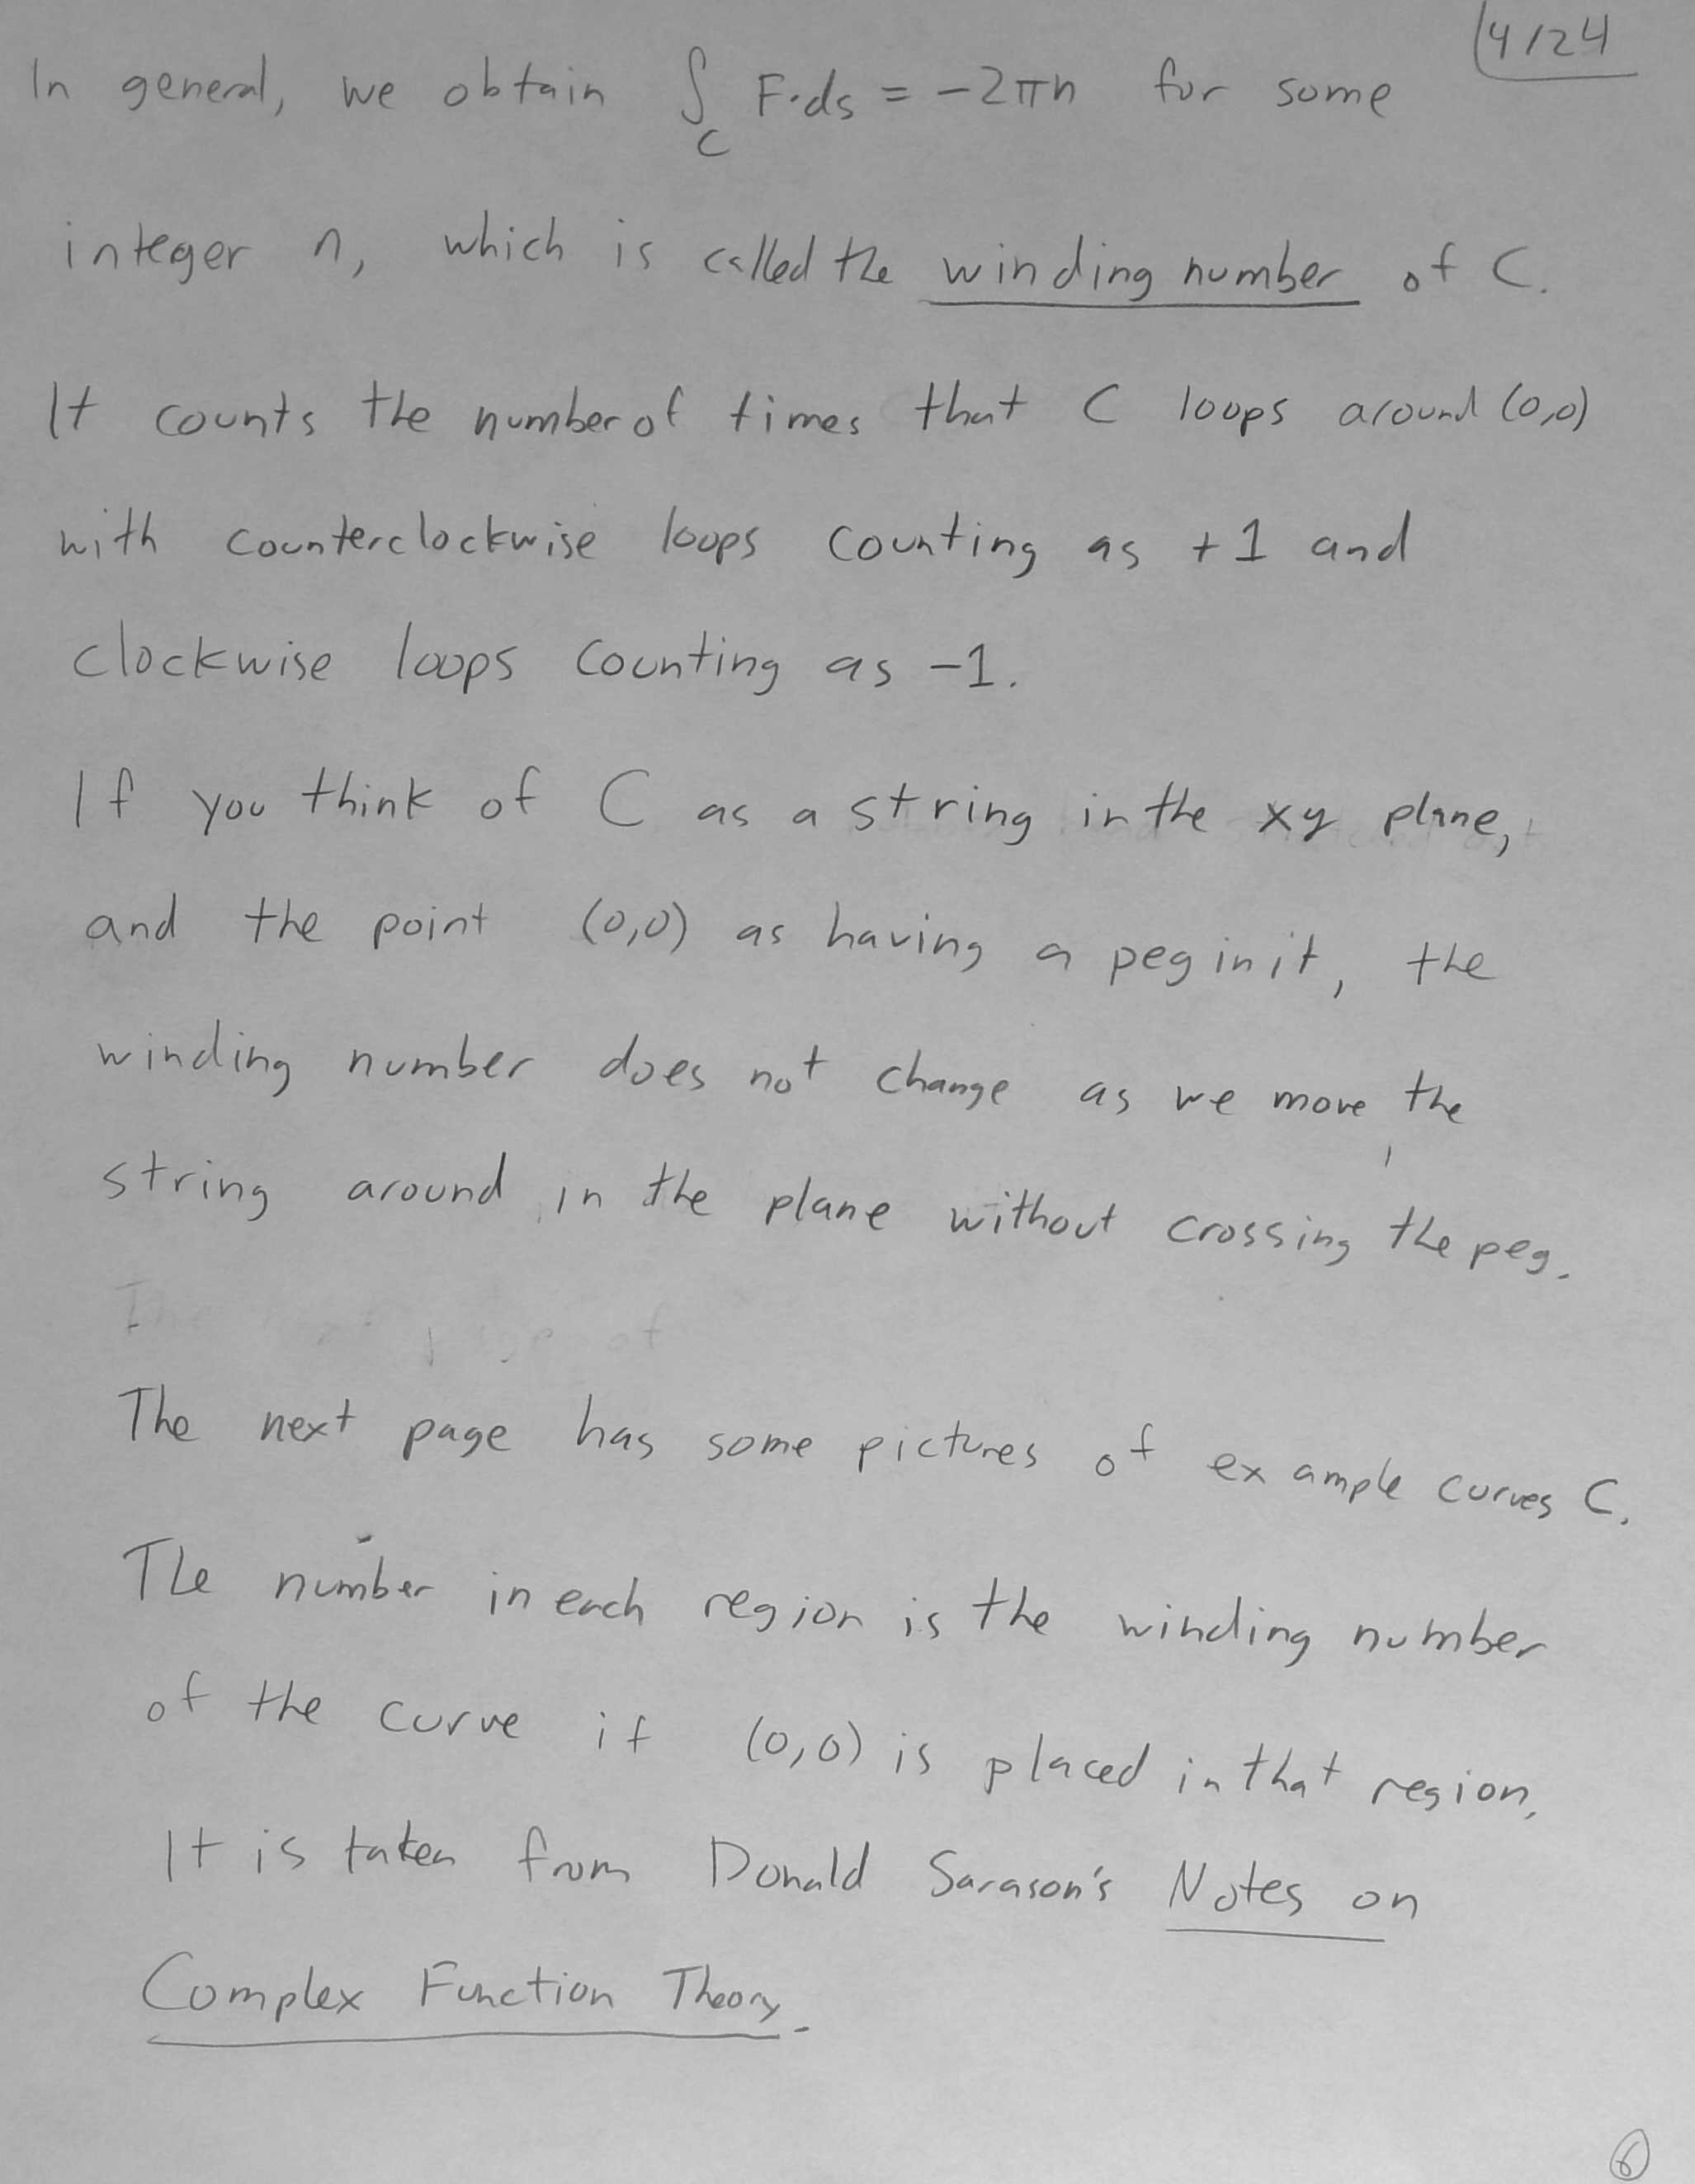 4/24
In general, we obtain ∫_C F·ds = -2πn for some
integer n, which is called the winding number of C.
It counts the number of times that C loops around (0,0)
with counterclockwise loops counting as +1 and
clockwise loops counting as -1.
If you think of C as a string in the xy plane,
and the point (0,0) as having a peg in it, the
winding number does not change as we move the
string around in the plane without crossing the peg.
The next page has some pictures of example curves C.
The number in each region is the winding number
of the curve if (0,0) is placed in that region.
It is taken from Donald Sarason's Notes on
Complex Function Theory.
6